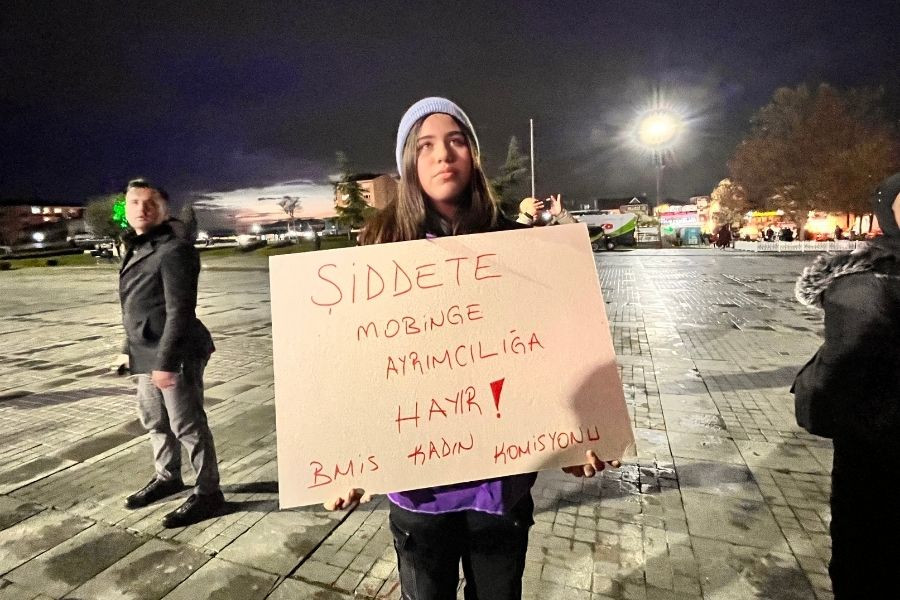 ŞİDDETE
MOBiNGE
AYRIMCILIĞA
HAYIR!
BMiS KADIN KOMiSYONU